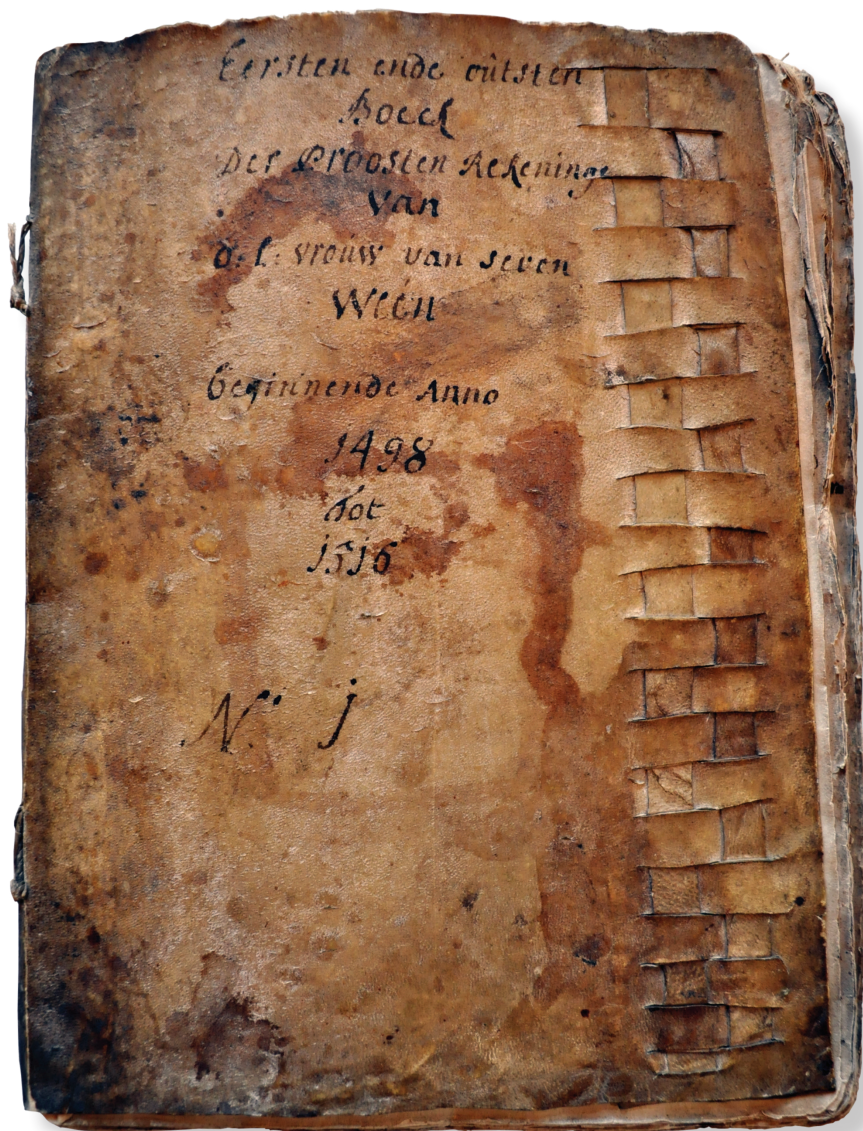 Eersten ende oûtsten
Boeck
Der Proosten Rekeninge
van
O: L: vrouw van seven
Weén
beginnende Anno
1498
tot
1516
N.º j